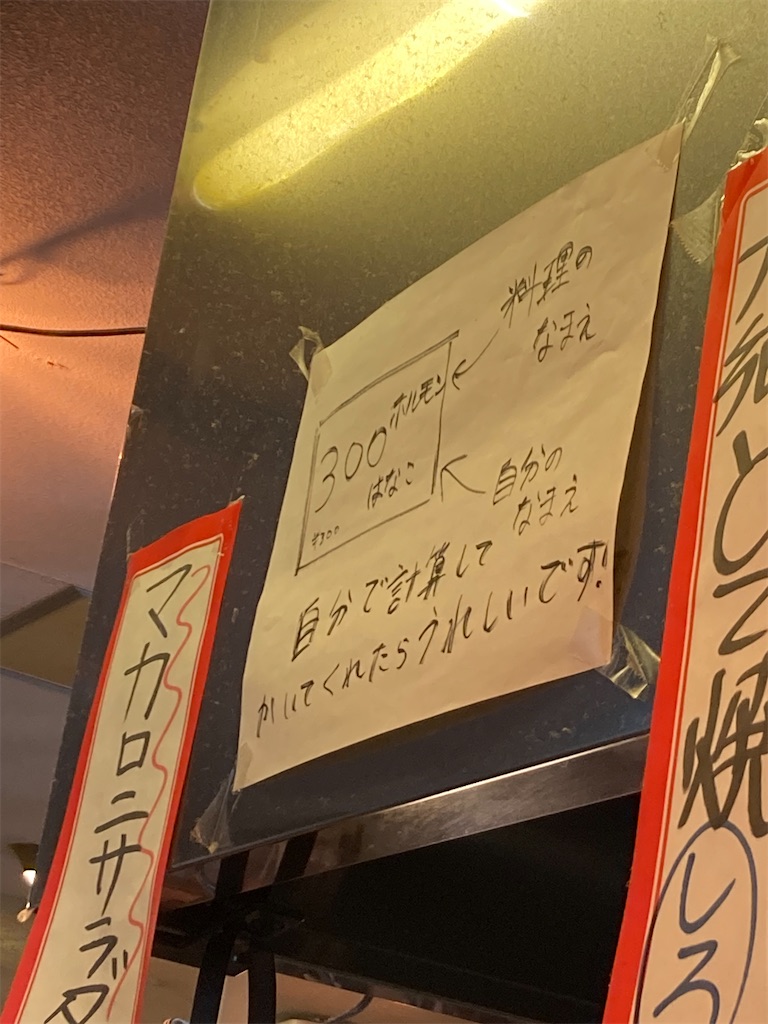 料理の
なまえ
ホルモン
300
はなこ
¥300
自分の
なまえ
自分で計算して
かいてくれたらうれしいです!
マカロニサラダ
とて焼
しろ